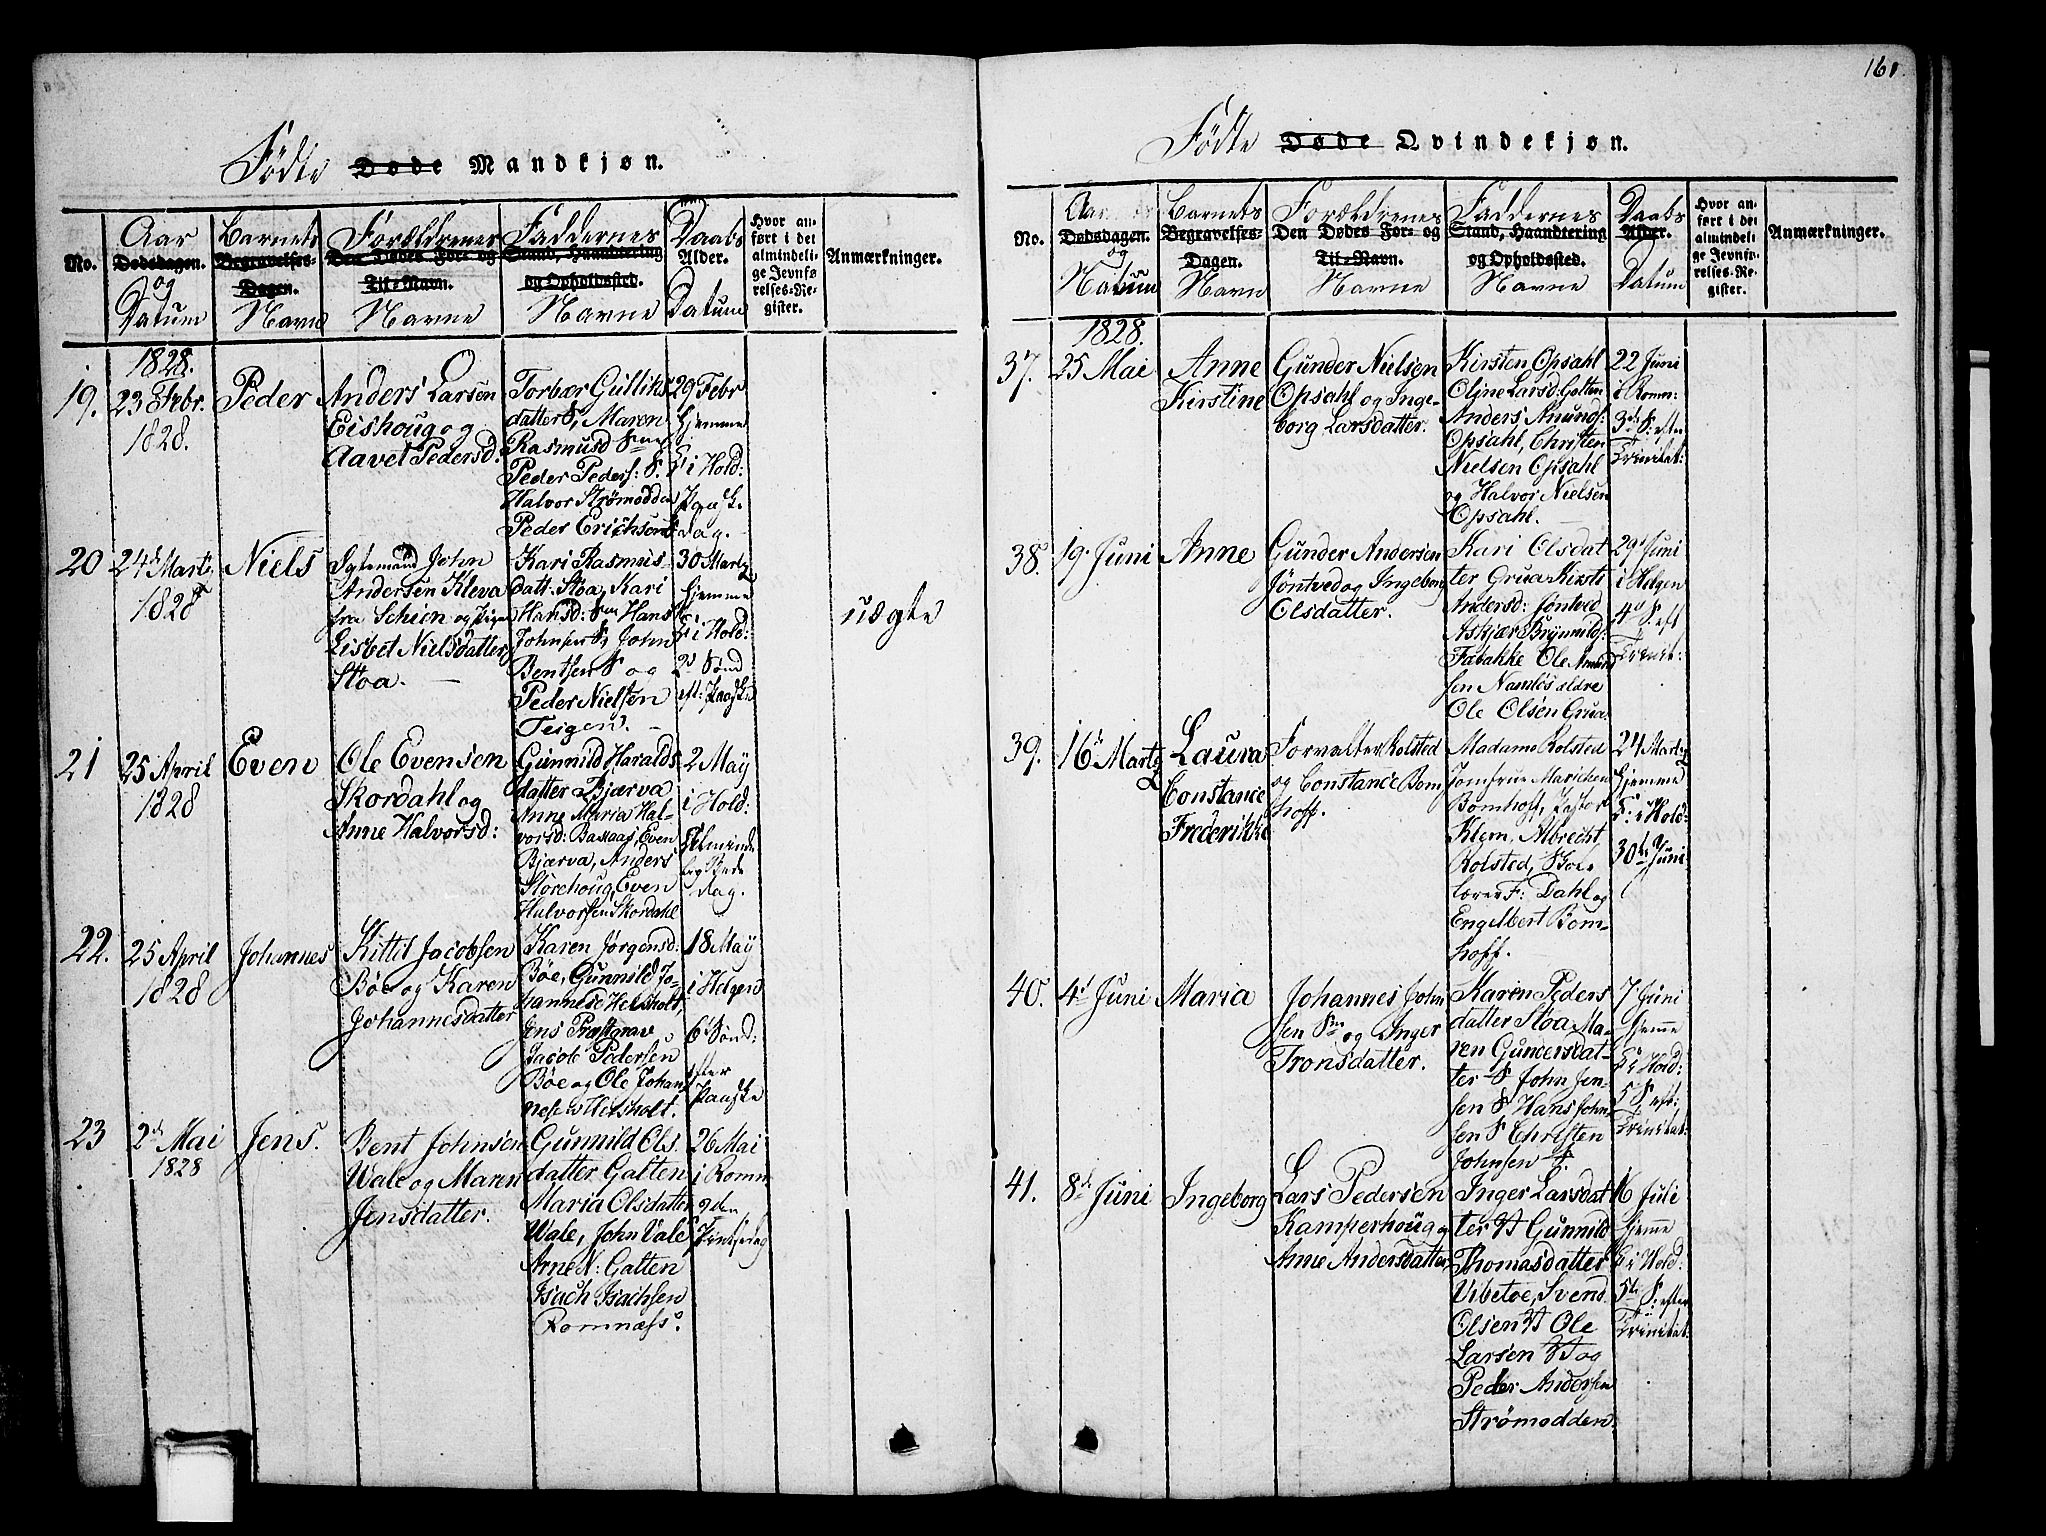 161.
Fødte Døde Mandkjøn.
No.
Aar Dødsdagen. og Datum
Barnets Begravelses-Dagen. Navn
Forældrenes Den Dødes For- og Til-Navn. Navne
Faddernes Stand, Haandtering og Opholdssted. Navne
Daabs Alder. Datum
Hvor anført i det almindelige Jevnførelses-Register.
Anmærkninger.
1828.
19.
23 Febr.
1828.
Peder
Anders Larsen
Eishoug og
Aavet Pedersd.
Torbær Gulliks
datter S, Maren
Rasmusd
Peder Peders: S.
Halvor Strømodden
Peder Erichsen
29 Febr
hjemme
i Hold:
Paaske
dag.
20
24d Marts
1828
Niels
Ygtemand John
Andersen Kleva
fra Schien og Pige
Lisbet Nielsdatter
Stoa.
Kari Rasmus-
datt: Stoa, Kari
Hansd: Hans
Johnsen S, John
Bentsen S og
Peder Nielsen
Teigen.
30 Marts
hjemme
i Hold:
2d Sønd
eft: Paaske
uægte
21
25 April
1828
Even
Ole Evensen
Skordahl og
Anne Halvorsd:
Gunnild Haralds
datter Bjærva
Anne Maria Hal-
vorsd: Baxaas, Even
Bjærva, Anders
Storehoug, Even
Halvorsen Skordahl
2 May
i Hold:
Alminde
lig Bede
dag.
22.
25 April
1828
Johannes
Kittil Jacobsen
Bøe og Karen
Johannesdatter
Karen Jørgensd:
Bøe, Gunnild Jo-
hannesd Helsholt,
Jens Præstgrav
Jacob Pedersen
Bøe og Ole Johan
nesen Helsholt.
18 May
i Helgen
6 Sønd:
efter
Paaske
23
2d Mai
1828
Jens.
Bent Johnsen
Vale og Maren
Jensdatter.
Gunnild Ols
datter Galten
Maria Olsdatter
Wale, John Vale
Arne N: Galten
Isach Isachsen
Romnæss.
26 Mai
i Romn
2den
Pintsedag
Fødte Døde Qvindekjøn.
No.
Aar Dødsdagen. og Datum
Barnets Begravelses-Dagen. Navn
Forældrenes Den Dødes For- og Til-Navn. Navne
Faddernes Stand, Haandtering og Opholdssted. Navne
Daabs Alder. Datum
Hvor anført i det almindelige Jevnførelses-Register.
Anmærkninger.
1828.
37.
25 Mai
Anne
Kirstine
Gunder Nielsen
Opsahl og Inge-
borg Larsdatter.
Kirsten Opsahl
Oline Larsd: Galten
Anders Anunds:
Opsahl, Christen
Nielsen Opsahl
og Halvor Nielsen
Opsahl.
22 Juni
i Romn:
3de S: efter
Trinitat:
38.
19 Juni
Anne
Gunder Andersen
Jøntved og Ingeborg
Olsdatter.
Kari Olsdat
ter Grua Kirsti
Andersd: Jøntved
Askjær Brynnilds:
Fabakke Ole Amund
sen Namløs ældre
Ole Olsen Grua.
29 Juni
i Helgen
4d S: eft
Trinit:
39.
16d Marts
Laura
Constance
Frederikke
Forvalter Rolsted
og Constance Bom
hoff.
Madame Rolsted
Jomfrue Marichen
Bomhoff, Pastor
Klem, Albrecht
Rolsted, Skoe-
lærer F: Dahl og
Engelbert Bom-
hoff.
24 Marts
hjemme
i Hold:
30te Juni
40.
4d Juni
Maria
Johannes John
sen og Inger
Tronsdatter.
Karen Peders
datter Stoa Ma-
ren Gundersdat-
ter S John Jen-
sen S Hans John
sen S Christen
Johnsen S.
7 Juni
hjemme
i Hold:
5 S. eft:
Trinitat:
41.
8d Juni
Ingeborg
Lars Pedersen
Kamperhoug og
Anne Andersdatter,
Inger Larsdat
ter Gunnild
Thomasdatter
Vibetoe, Svend
Olsen Ole
Larsen og
Peder Andersen
Strømodden.
6 Juli
hjemme
i Hold:
5te S: efter
Trinitat: